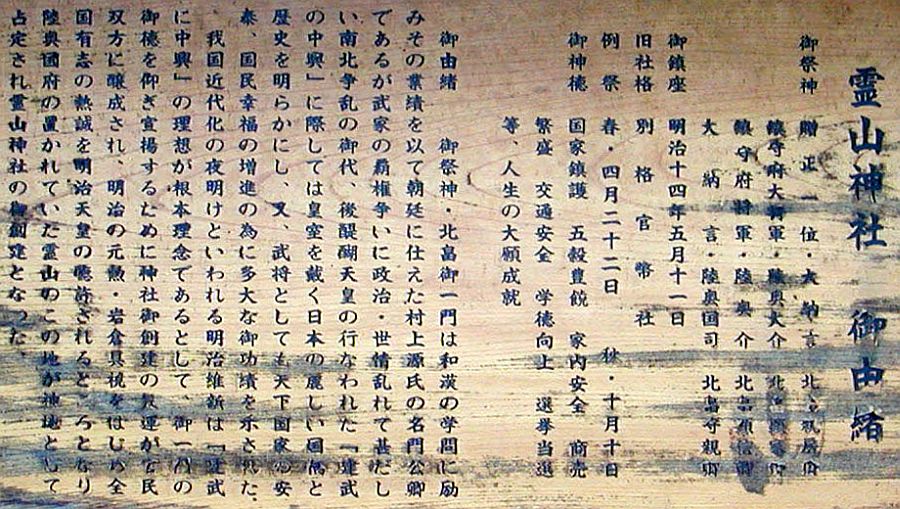 霊山神社 御由緒
御祭神 贈正一位・大納言 北畠親房
鎮守府大将軍・陸奥大介 北畠顕家卿
鎮守府将軍・陸奥介 北畠顕信卿
大納言・陸奥国司 北畠守親卿
御鎮座 明治十四年五月十一日
旧社格 別格官幣社
例祭 春・四月二十二日 秋・十月十日
御神徳 国家鎮護 五穀豊饒 家内安全 商売
繁盛 交通安全 学徳向上 選挙当選
等、人生の大願成就
御由緒 御祭神・北畠御一門は和漢の学問に励
みその業績を以て朝廷に仕えた村上源氏の名門公卿
であるが武家の覇権争いに政治・世情乱れて甚だし
い、南北争乱の御代、後醍醐天皇の行なわれた「建武
の中興」に際しては皇室を戴く日本の麗しい国体と
歴史を明らかにし、又、武将としても天下国家の安
泰、国民幸福の増進の為に多大な御功績を示された。
我国近代化の夜明けといわれる明治維新は「建武
に中興」の理想が根本理念であるとして、御一門の
御徳を仰ぎ宣揚するために神社御創建の気運が官民
双方に醸成され、明治の元勲・岩倉具視をはじめ全
国有志の熱誠を明治天皇の聴許されるところとなり
陸奥國府の置かれていた霊山のこの地が神域として
占定され霊山神社の御創建となった。